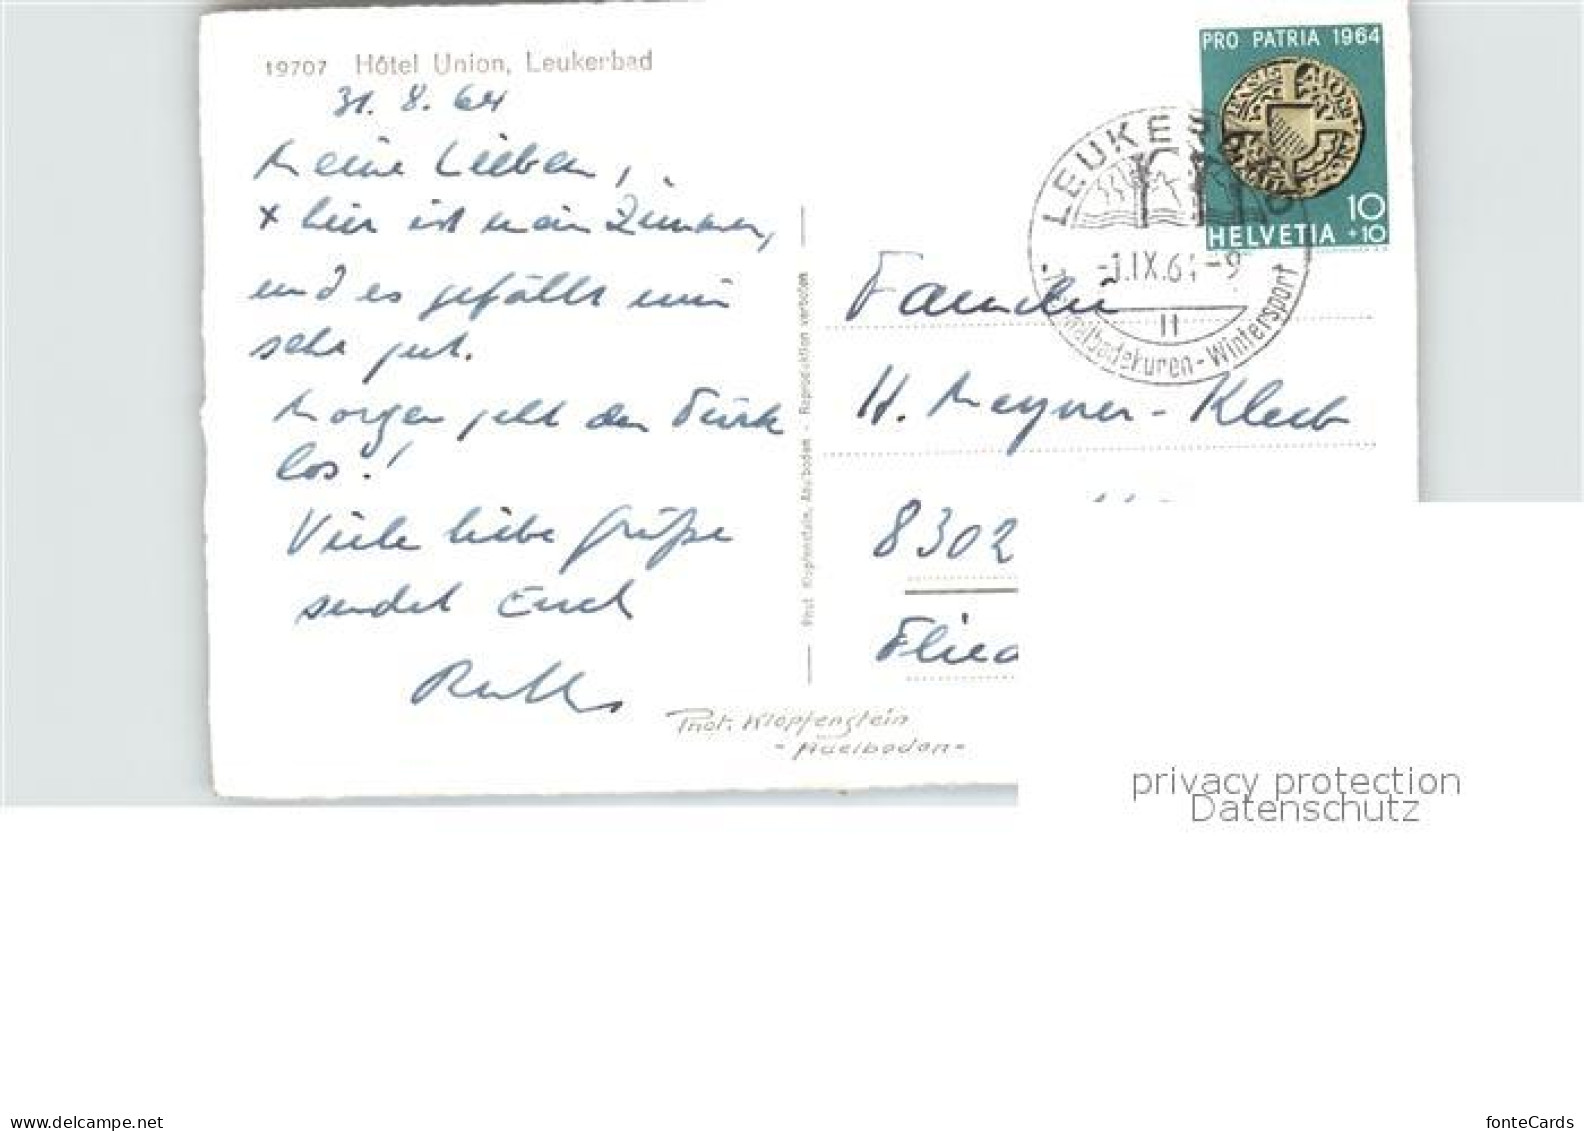 19707 Hôtel Union, Leukerbad
31. 8. 64
Meine Lieben,
x hier ist mein Zimmer,
und es gefällt mir
sehr gut.
Morgen geht der Türk
los!
Viele liebe Grüße
sendet Euch
Ruth
Phot. Klopfenstein
- Adelboden -
Phot. Klopfenstein, Adelboden - Reproduktion verboten
PRO PATRIA 1964
10
+10
HELVETIA
LEUKERBAD
-1.IX.64-9
Thermalbadekuren - Wintersport
Familie
H. Meyner-Kleeb
8302
privacy protection
Datenschutz
www.delcampe.net
fonteCards